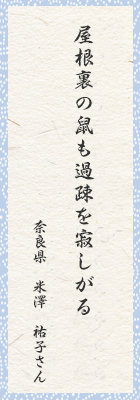 屋根裏の鼠も過疎を寂しがる
奈良県　米澤　祐子さん